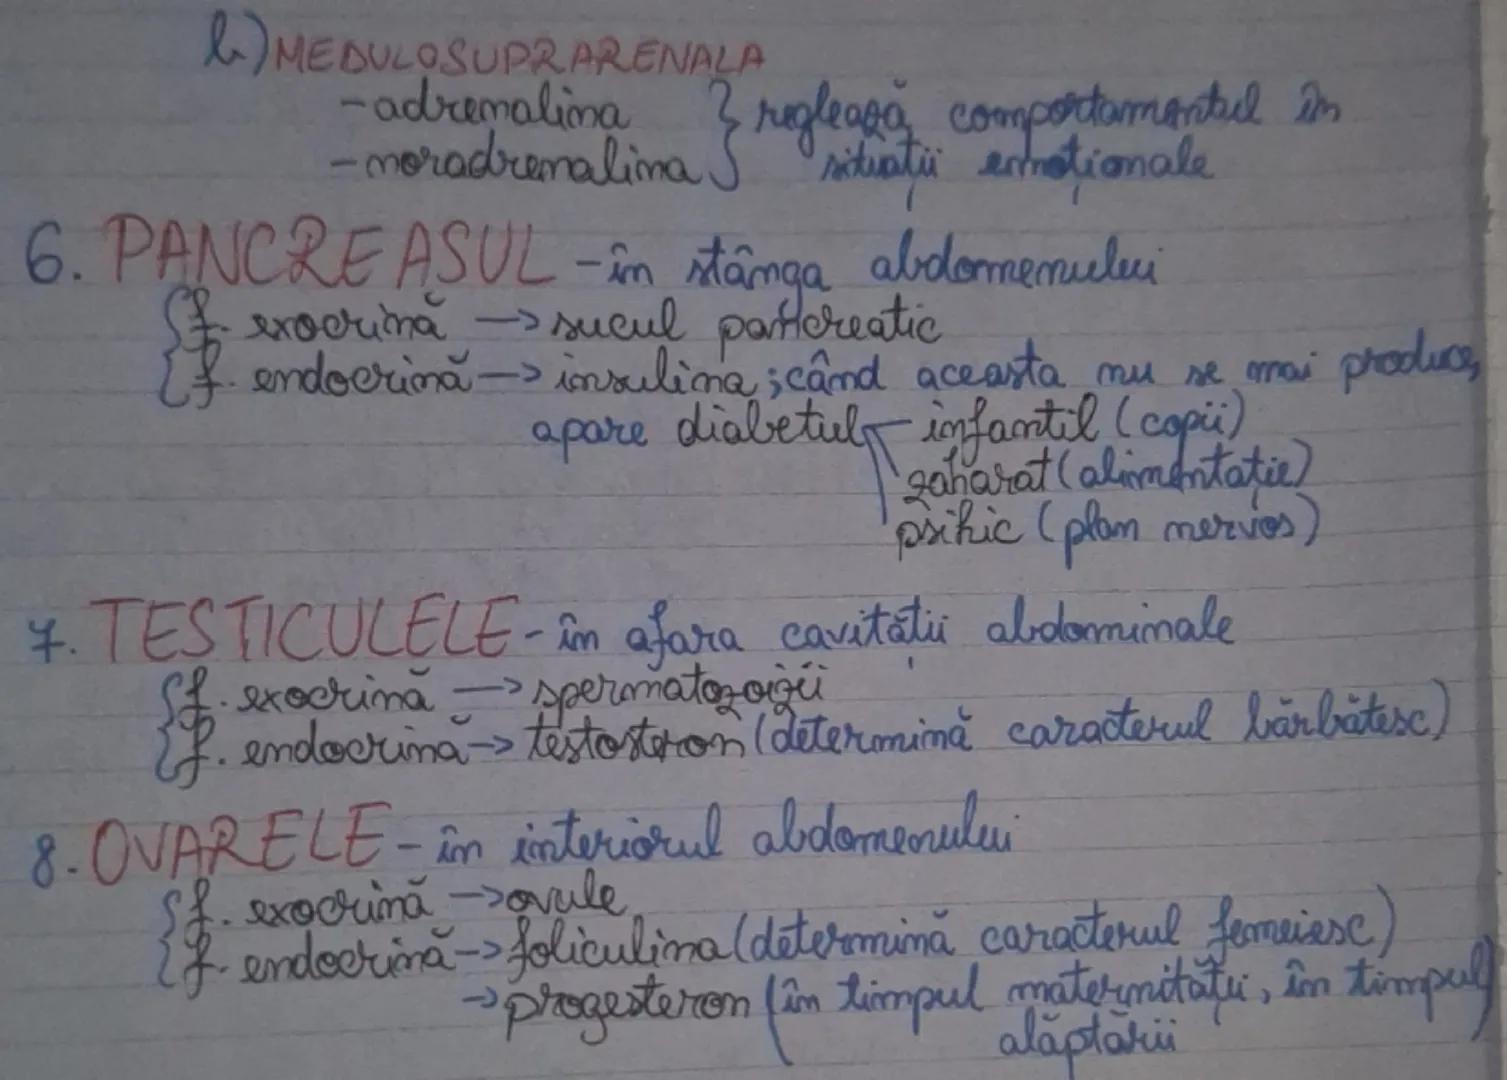 b.) MEDULOSUPRARENALA
- adrenalina } reglează comportamentul în
- noradrenalina } situații emoționale
6. PANCREASUL - în stânga abdomenului
{ f. exocrină -> sucul pancreatic
{ f. endocrină -> insulina; când aceasta nu se mai produce,
apare diabetul - infantil (copii)
zaharat (alimentație)
psihic (plan nervos)
7. TESTICULELE - în afara cavității abdominale
{ f. exocrină -> spermatozoizii
{ f. endocrină -> testosteron (determină caracterul bărbătesc)
8. OVARELE - în interiorul abdomenului
{ f. exocrină -> ovule
{ f. endocrină -> foliculina (determină caracterul femeiesc)
-> progesteron (în timpul maternității, în timpul
alăptării)